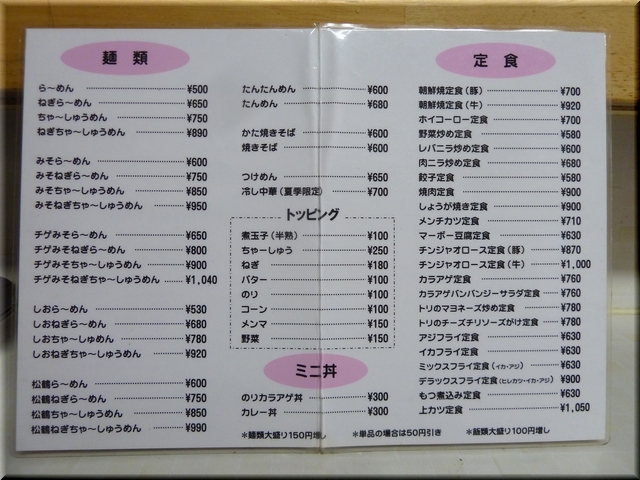 麺類
ら～めん ¥500
ねぎら～めん ¥650
ちゃ～しゅうめん ¥750
ねぎちゃ～しゅうめん ¥890
みそら～めん ¥600
みそねぎら～めん ¥750
みそちゃ～しゅうめん ¥850
みそねぎちゃ～しゅうめん ¥950
チゲみそら～めん ¥650
チゲみそねぎら～めん ¥800
チゲみそちゃ～しゅうめん ¥900
チゲみそねぎちゃ～しゅうめん ¥1,040
しおら～めん ¥530
しおねぎら～めん ¥680
しおちゃ～しゅうめん ¥780
しおねぎちゃ～しゅうめん ¥920
松鶴ら～めん ¥600
松鶴ねぎら～めん ¥750
松鶴ちゃ～しゅうめん ¥850
松鶴ねぎちゃ～しゅうめん ¥990
たんたんめん ¥600
たんめん ¥680
かた焼きそば ¥600
焼きそば ¥600
つけめん ¥650
冷し中華（夏季限定） ¥700
トッピング
煮玉子（半熟） ¥100
ちゃーしゅう ¥250
ねぎ ¥180
バター ¥100
のり ¥100
コーン ¥100
メンマ ¥150
野菜 ¥150
ミニ丼
のりカラアゲ丼 ¥300
カレー丼 ¥300
定食
朝鮮焼定食（豚） ¥700
朝鮮焼定食（牛） ¥920
ホイコーロー定食 ¥700
野菜炒め定食 ¥580
レバニラ炒め定食 ¥680
肉ニラ炒め定食 ¥680
餃子定食 ¥580
焼肉定食 ¥900
しょうが焼き定食 ¥900
メンチカツ定食 ¥710
マーボー豆腐定食 ¥630
チンジャオロース定食（豚） ¥870
チンジャオロース定食（牛） ¥1,000
カラアゲ定食 ¥760
カラアゲバンバンジーサラダ定食 ¥760
トリのマヨネーズ炒め定食 ¥780
トリのチーズチリソースがけ定食 ¥780
アジフライ定食 ¥630
イカフライ定食 ¥630
ミックスフライ定食（イカ・アジ） ¥630
デラックスフライ定食（ヒレカツ・イカ・アジ） ¥900
もつ煮込み定食 ¥630
上カツ定食 ¥1,050
＊麺類大盛り150円増し ＊単品の場合は50円引き ＊飯類大盛り100円増し